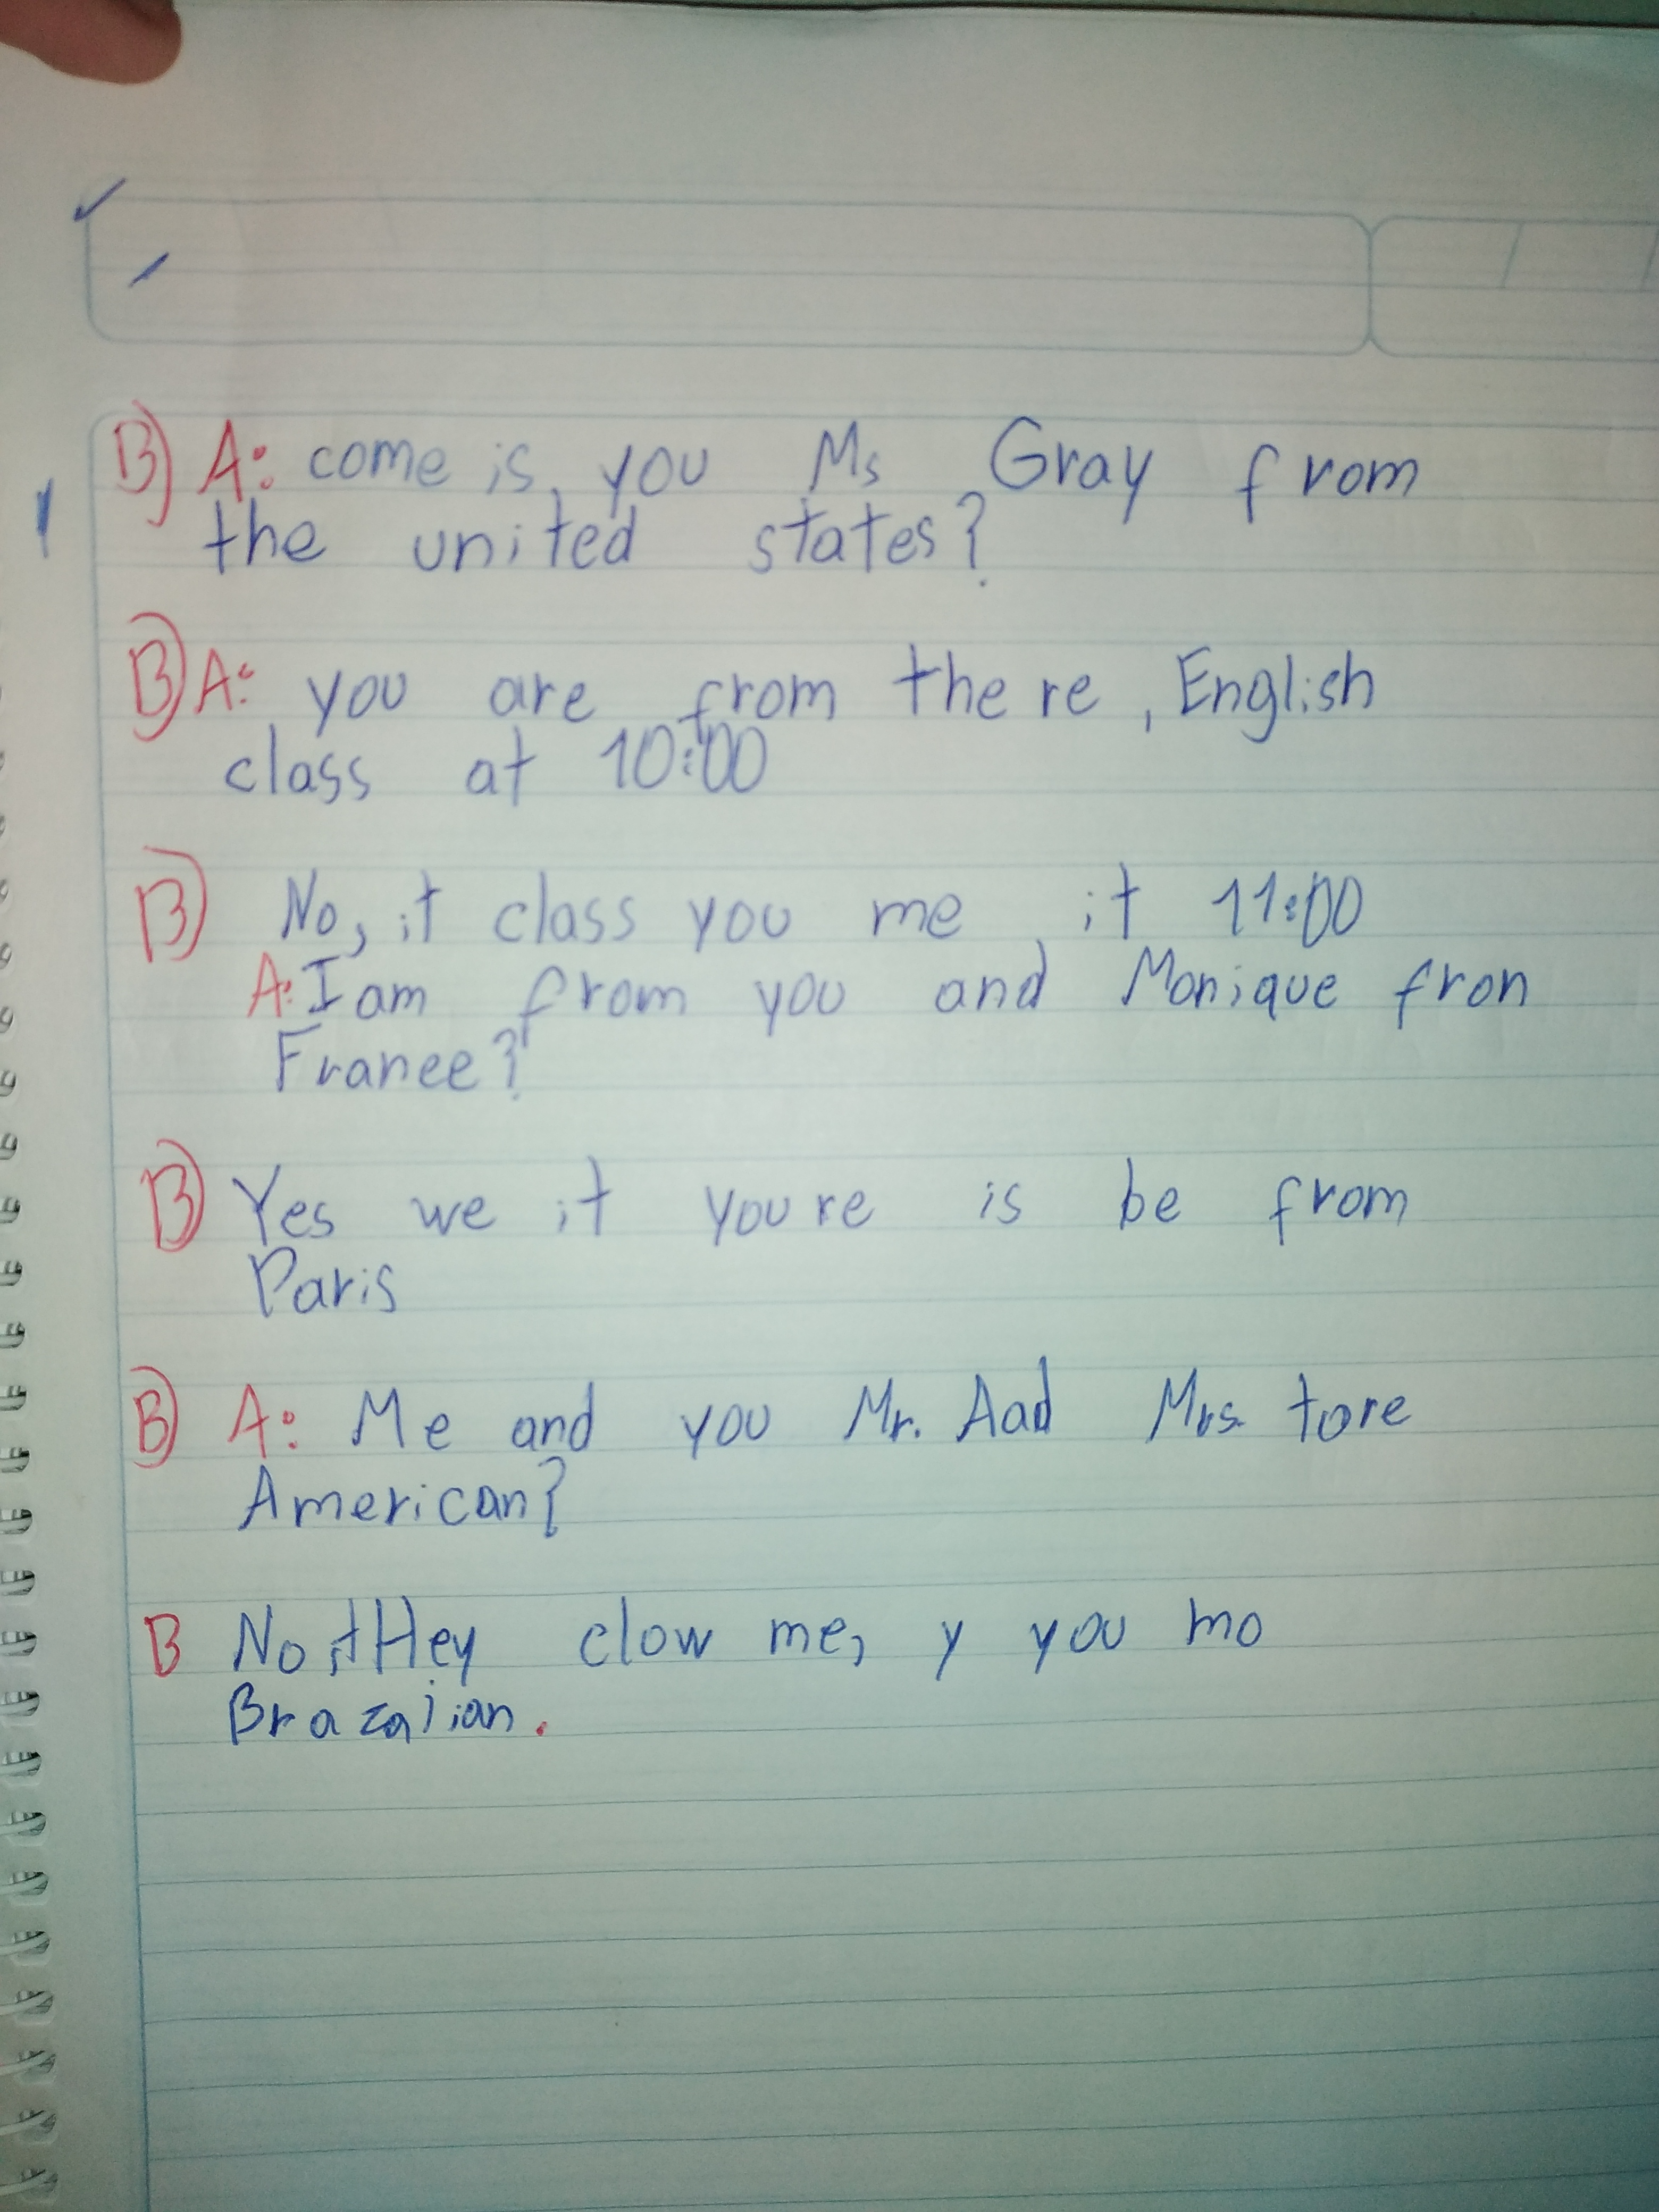 B) A: come is you Ms Gray from
the united states?
B) A: you are from there, English
class at 10:00
B) No, it class you me it 11:00
A: I am from you and Monique fron
Franee?
B) Yes we it youre is be from
Paris
B) A: Me and you Mr. Aad Mrs. tore
American?
B No, it Hey clow me, y you mo
Brazalian.